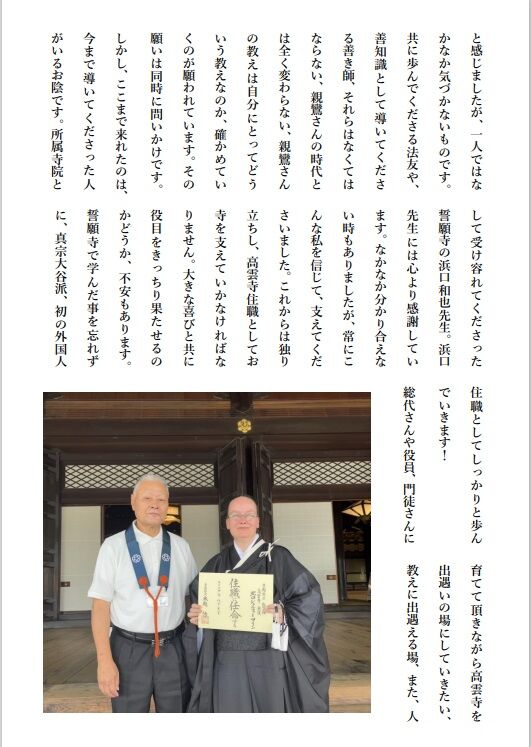 と感じましたが、一人ではな
かなか気づかないものです。
共に歩んでくださる法友や、
善知識として導いてくださ
る善き師、それらはなくては
ならない、親鸞さんの時代と
は全く変わらない、親鸞さん
の教えは自分にとってどう
いう教えなのか、確かめてい
くのが願われています。その
願いは同時に問いかけです。
しかし、ここまで来れたのは、
今まで導いてくださった人
がいるお陰です。所属寺院と
して受け容れてくださった
誓願寺の浜口和也先生。浜口
先生には心より感謝してい
ます。なかなか分かり合えな
い時もありましたが、常にこ
んな私を信じて、支えてくだ
さいました。これからは独り
立ちし、高雲寺住職としてお
寺を支えていかなければな
りません。大きな喜びと共に
役目をきっちり果たせるの
かどうか、不安もあります。
誓願寺で学んだ事を忘れず
に、真宗大谷派、初の外国人
住職としてしっかりと歩ん
でいきます！
総代さんや役員、門徒さんに
育てて頂きながら高雲寺を
出遇いの場にしていきたい、
教えに出遇える場、また、人
住職に任命する